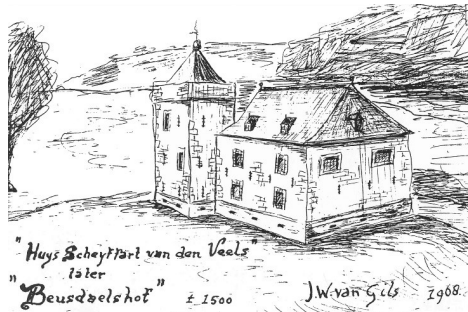 "Huys Scheyffart van den Veels"
later
"Beusdaelshof" ± 1500
J.W. van Gils 1968.